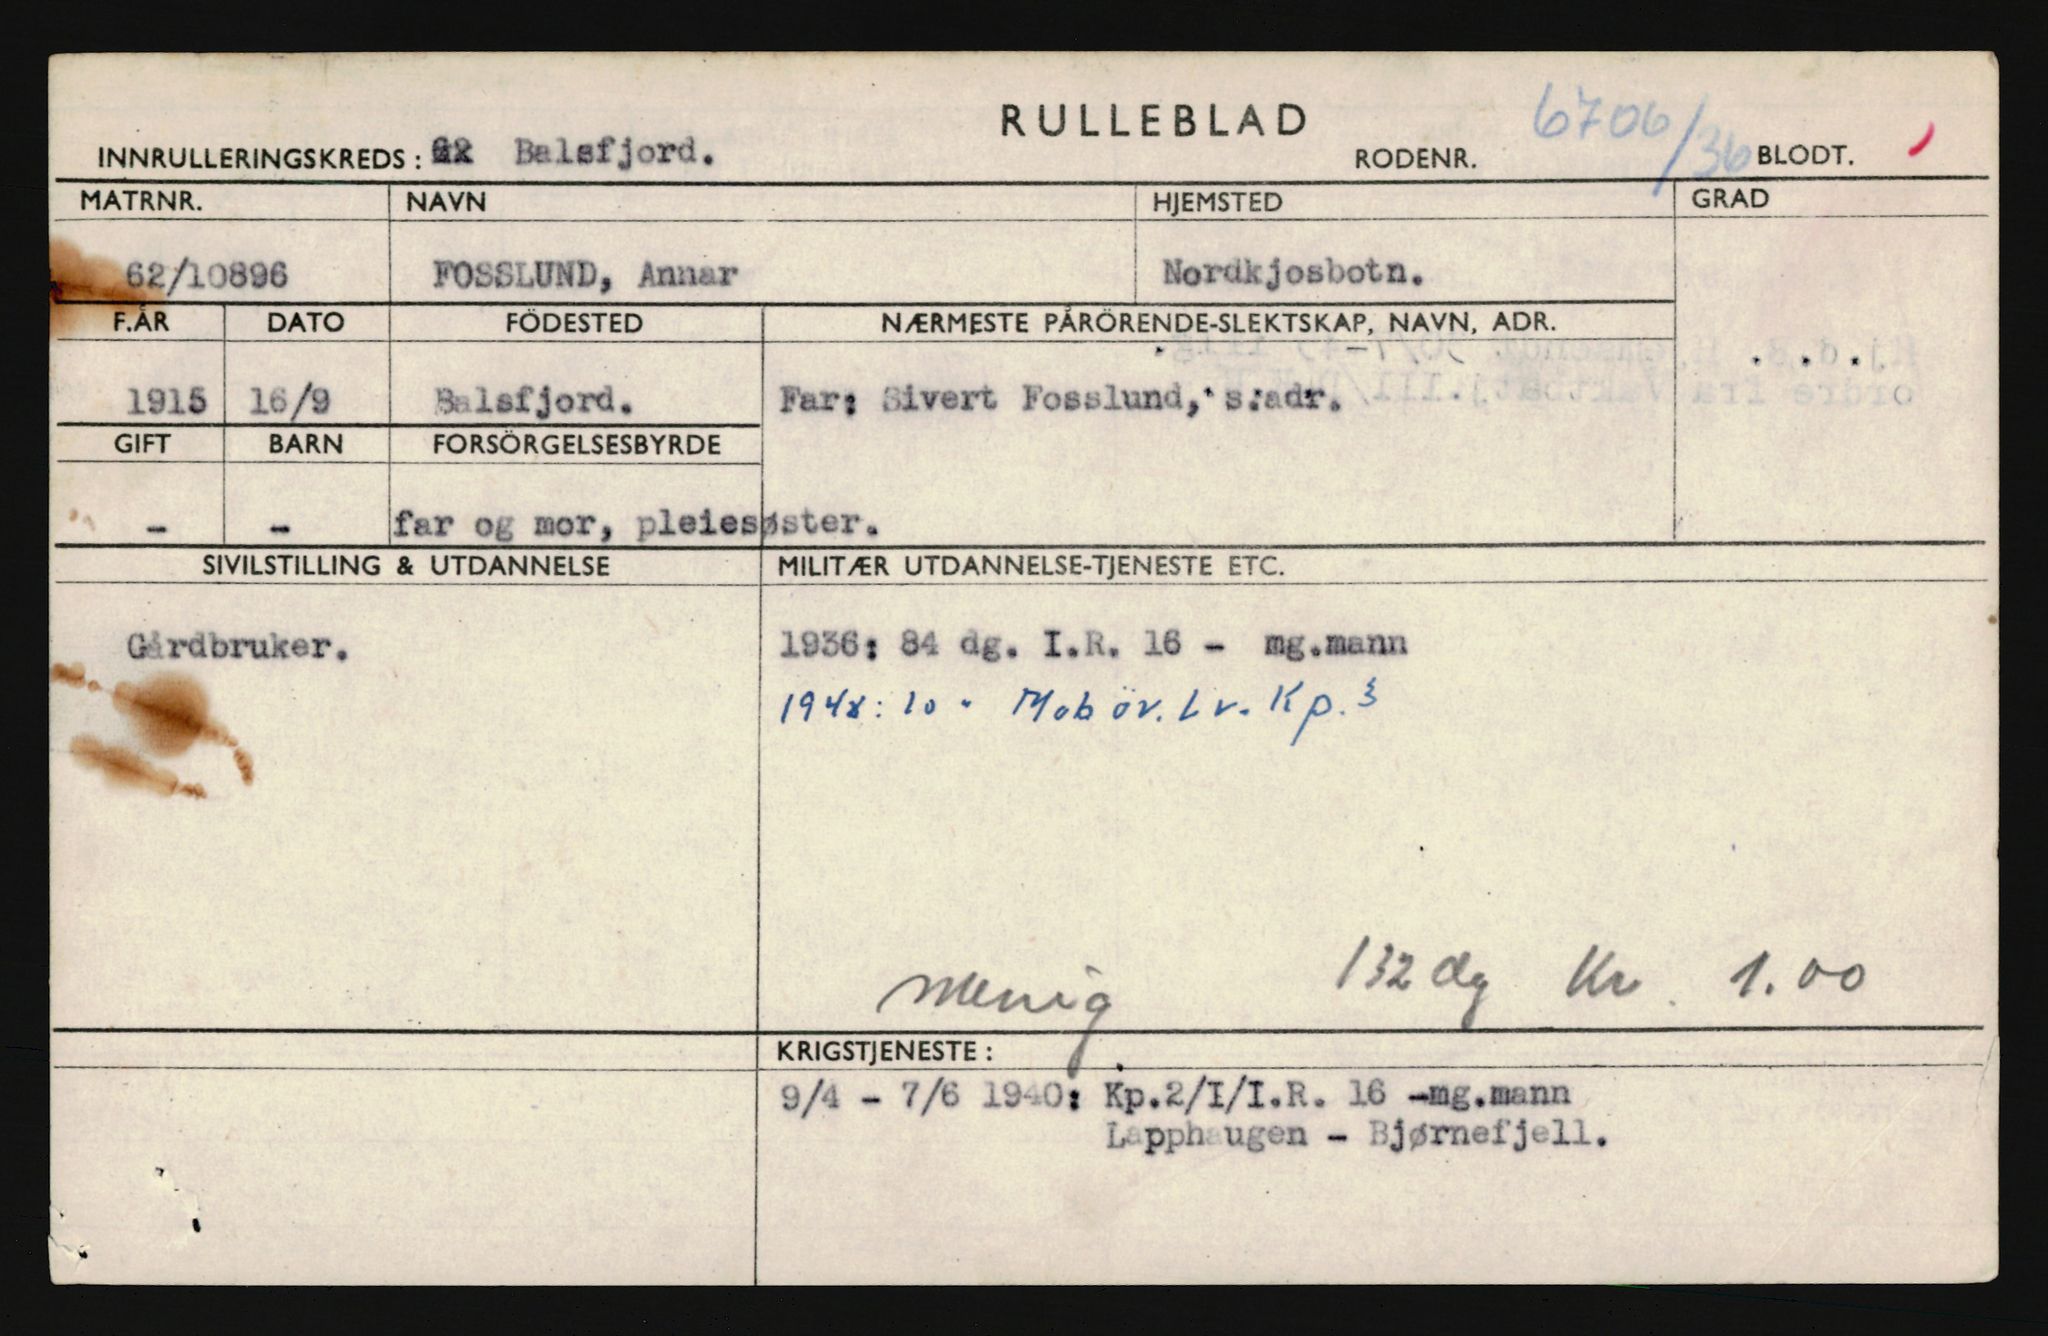 RULLEBLAD
INNRULLERINGSKREDS: 62 Balsfjord. RODENR. 6706/36 BLODT.
MATRNR. NAVN HJEMSTED GRAD
62/10896 FOSSLUND, Annar Nordkjosbotn.
F.ÅR DATO FÖDESTED NÆRMESTE PÅRÖRENDE-SLEKTSKAP, NAVN, ADR.
1915 16/9 Balsfjord. Far: Sivert Fosslund, s.adr.
GIFT BARN FORSÖRGELSESBYRDE
- - far og mor, pleiesøster.
SIVILSTILLING & UTDANNELSE MILITÆR UTDANNELSE-TJENESTE ETC.
Gårdbruker. 1936: 84 dg. I.R. 16 - mg.mann
10 " Mob öv. Lv. Kp. 3
Menig 132 dg Kr. 1.00
KRIGSTJENESTE:
9/4 - 7/6 1940: Kp.2/I/I.R. 16 -mg.mann
Lapphaugen - Bjørnefjell.